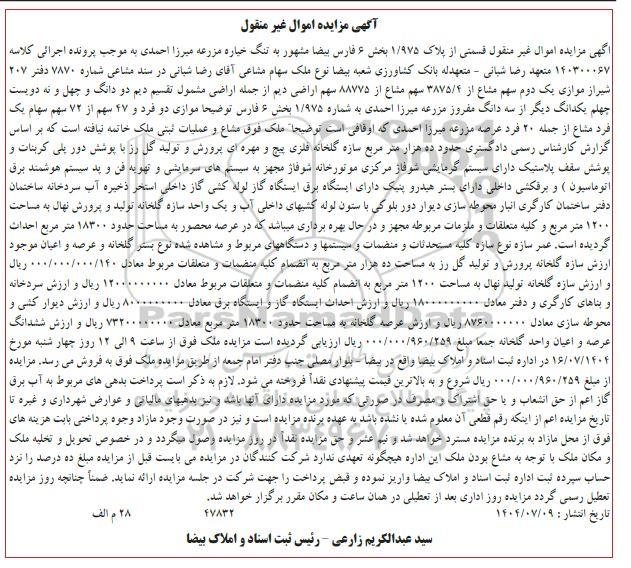 آگهی مزایده اموال غیر منقول
اگهی مزایده اموال غیر منقول قسمتی از پلاک ۱/۹۷۵ بخش ۶ فارس بیضا مشهور به تنگ خیاره مزرعه میرزا احمدی به موجب پرونده اجرائی کلاسه
۱۴۰۳۰۰۰۶۷ متعهد رضا شبانی - متعهدله بانک کشاورزی شعبه بیضا نوع ملک سهام مشاعی آقای رضا شبانی در سند مشاعی شماره ۷۸۷۰ دفتر ۲۰۷
شیراز موازی یک دوم سهم مشاع از ۳۸۷۵/۴ سهم مشاع از ۸۸۷۷۵ سهم اراضی دیم از جمله اراضی مشمول تقسیم دیم دو دانگ و چهل و نه دویست
چهلم یکدانگ دیگر از سه دانگ مفروز مزرعه میرزا احمدی به شماره ۱/۹۷۵ بخش ۶ فارس توضیحا موازی دو فرد و ۴۷ سهم از ۷۲ سهم سهام یک
فرد مشاع از جمله ۲۰ فرد عرصه مزرعه میرزا احمدی که اوقافی است توضیحا" ملک فوق مشاع و عملیات ثبتی ملک خاتمه نیافته است که بر اساس
گزارش کارشناس رسمی دادگستری حدود ده هزار متر مربع سازه گلخانه فلزی پیچ و مهره ای پرورش و تولید گل رز با پوشش دور پلی کربنات و
پوشش سقف پلاستیک دارای سیستم گرمایشی شوفاژ مرکزی موتورخانه شوفاژ مجهز به سیستم های سرمایشی و تهویه فن و پد سیستم هوشمند برق
اتوماسیون ) و برقکشی داخلی دارای بستر هیدرو پنیک دارای ایستگاه برق ایستگاه گاز لوله کشی گاز داخلی استخر ذخیره آب سردخانه ساختمان
دفتر ساختمان کارگری انبار محوطه سازی دیوار دور بلوکی با ستون لوله کشیهای داخلی آب و یک واحد سازه گلخانه تولید و پرورش نهال به مساحت
۱۲۰۰ متر مربع و کلیه متعلقات و ملزمات مربوطه مجهز و در حال بهره برداری میباشد که در عرصه محصور به مساحت حدود ۱۸۳۰۰ متر مربع احداث
گردیده است. عمر سازه نوع سازه کلیه مستحدثات و منضمات و سیستمها و دستگاههای مربوط و مشاهده شده نوع بستر گلخانه و عرصه و اعیان موجود
ارزش سازه گلخانه پرورش و تولید گل رز به مساحت ده هزار متر مربع به انضمام کلیه منضمات و متعلقات مربوط معادل ۰۰۰/۰۰۰/۰۰۰/۱۴۰ ریال
و ارزش سازه گلخانه تولید نهال به مساحت ۱۲۰۰ متر مربع به انضمام کلیه منضمات و متعلقات مربوط معادل ریال و ارزش سردخانه
و بناهای کارگری و دفتر معادل ریال و ارزش احداث ایستگاه گاز و ایستگاه برق معادل ریال و ارزش دیوار کشی و
محوطه سازی معادل ریال و ارزش عرصه گلخانه به مساحت حدود ۱۸۳۰۰ متر مربع معادل ریال و ارزش ششدانگ
عرصه و اعیان واحد گلخانه جمعا مبلغ ۰۰۰/۰۰۰/۹۶۰/۲۵۹ ریال ارزیابی گردیده است مزایده ملک فوق از ساعت ۹ الی ۱۲ روز چهار شنبه مورخ
۱۶/۰۷/۱۴۰۴ در اداره ثبت اسناد و املاک بیضا واقع در بیضا - بلوار مصلی جنب دفتر امام جمعه از طریق مزایده ملک فوق به فروش می رسد. مزایده
از مبلغ ۰۰۰/۰۰۰/۹۶۰/۲۵۹ ریال شروع و به بالاترین قیمت پیشنهادی نقداً فروخته می شود. لازم به ذکر است پرداخت بدهی های مربوط به آب برق
گاز اعم از حق انشعاب و یا حق اشتراک و مصرف در صورتی که مورد مزایده دارای آنها باشد و نیز بدهیهای مالیاتی و عوارض شهرداری و غیره تا
تاریخ مزایده اعم از اینکه رقم قطعی آن معلوم شده یا نشده باشد به عهده برنده مزایده است و نیز در صورت وجود مازاد وجوه پرداختی بابت هزینه های
فوق از محل مازاد به برنده مزایده مسترد خواهد شد و نیم عشر و حق مزایده نقداً در روز مزایده وصول میگردد و در خصوص تحویل و تخلیه ملک
و مکان ملک با توجه به مشاع بودن ملک این اداره هیچگونه تعهدی ندارد شرکت کنندگان در مزایده می بایست قبل از مزایده مبلغ ده درصد را نزد
حساب سپرده ثبت اداره ثبت اسناد و املاک بیضا واریز نموده و قبض پرداخت را جهت شرکت در جلسه مزایده ارائه نماید. ضمناً چنانچه روز مزایده
تعطیل رسمی گردد مزایده روز اداری بعد از تعطیلی در همان ساعت و مکان مقرر برگزار خواهد شد.
تاریخ انتشار : ۱۴۰۴/۰۷/۰۹ ۴۷۸۳۲ ۲۸ م الف
سید عبدالکریم زارعی - رئیس ثبت اسناد و املاک بیضا